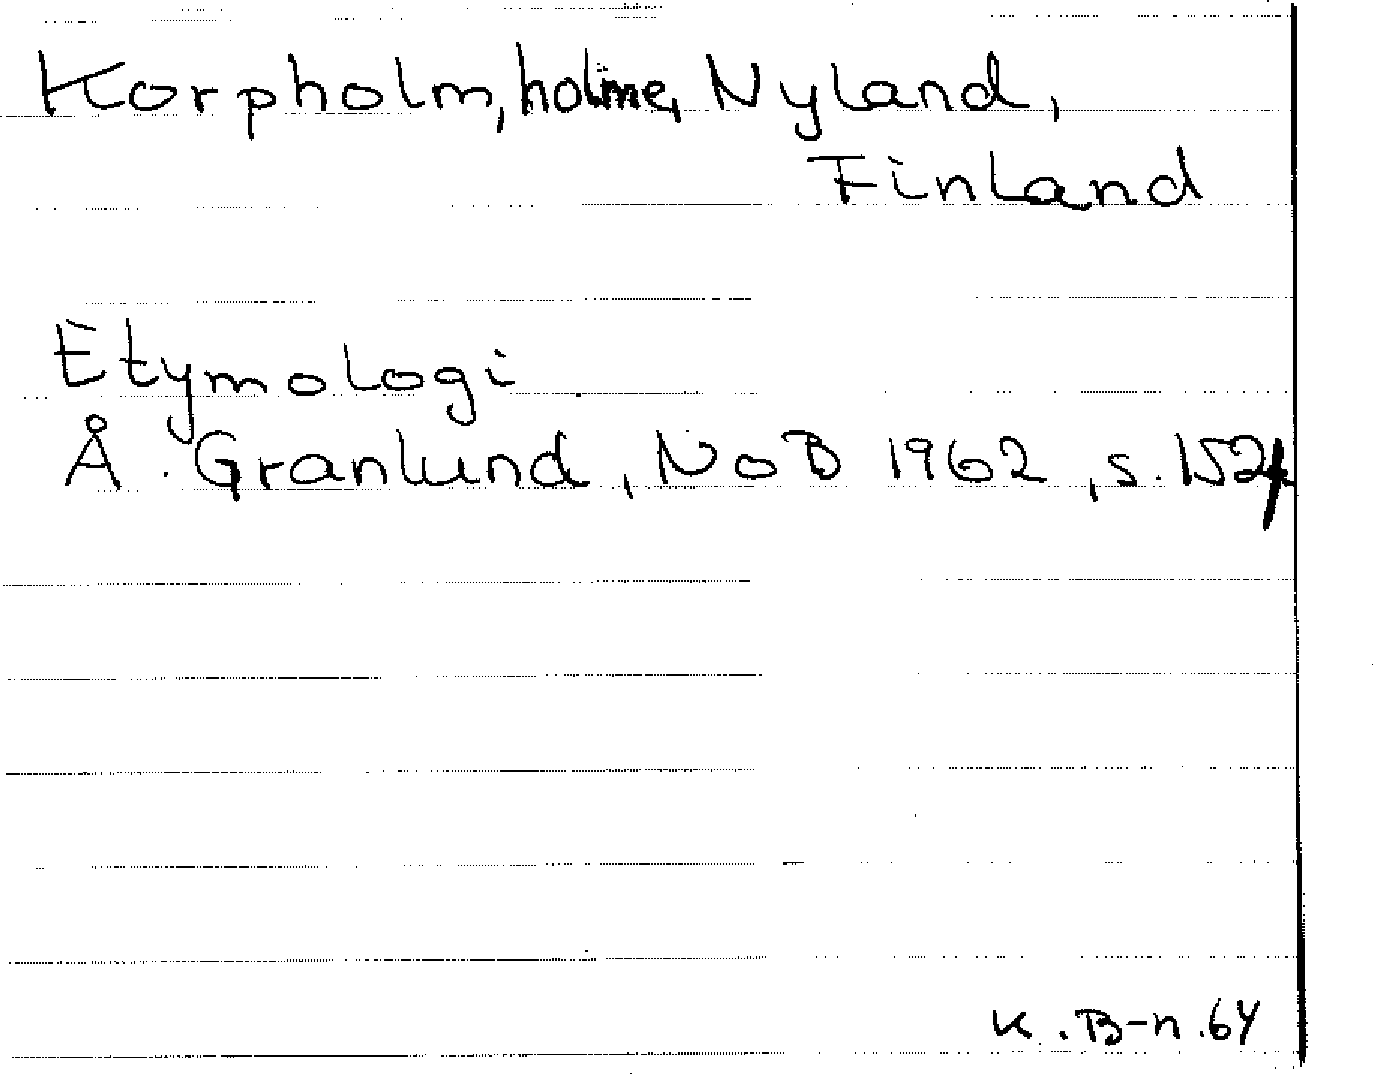 Korpholm, holme, Nyland,
Finland
Etymologi
Å. Granlund, NoB 1962, s. 152f
K. B-n. 64